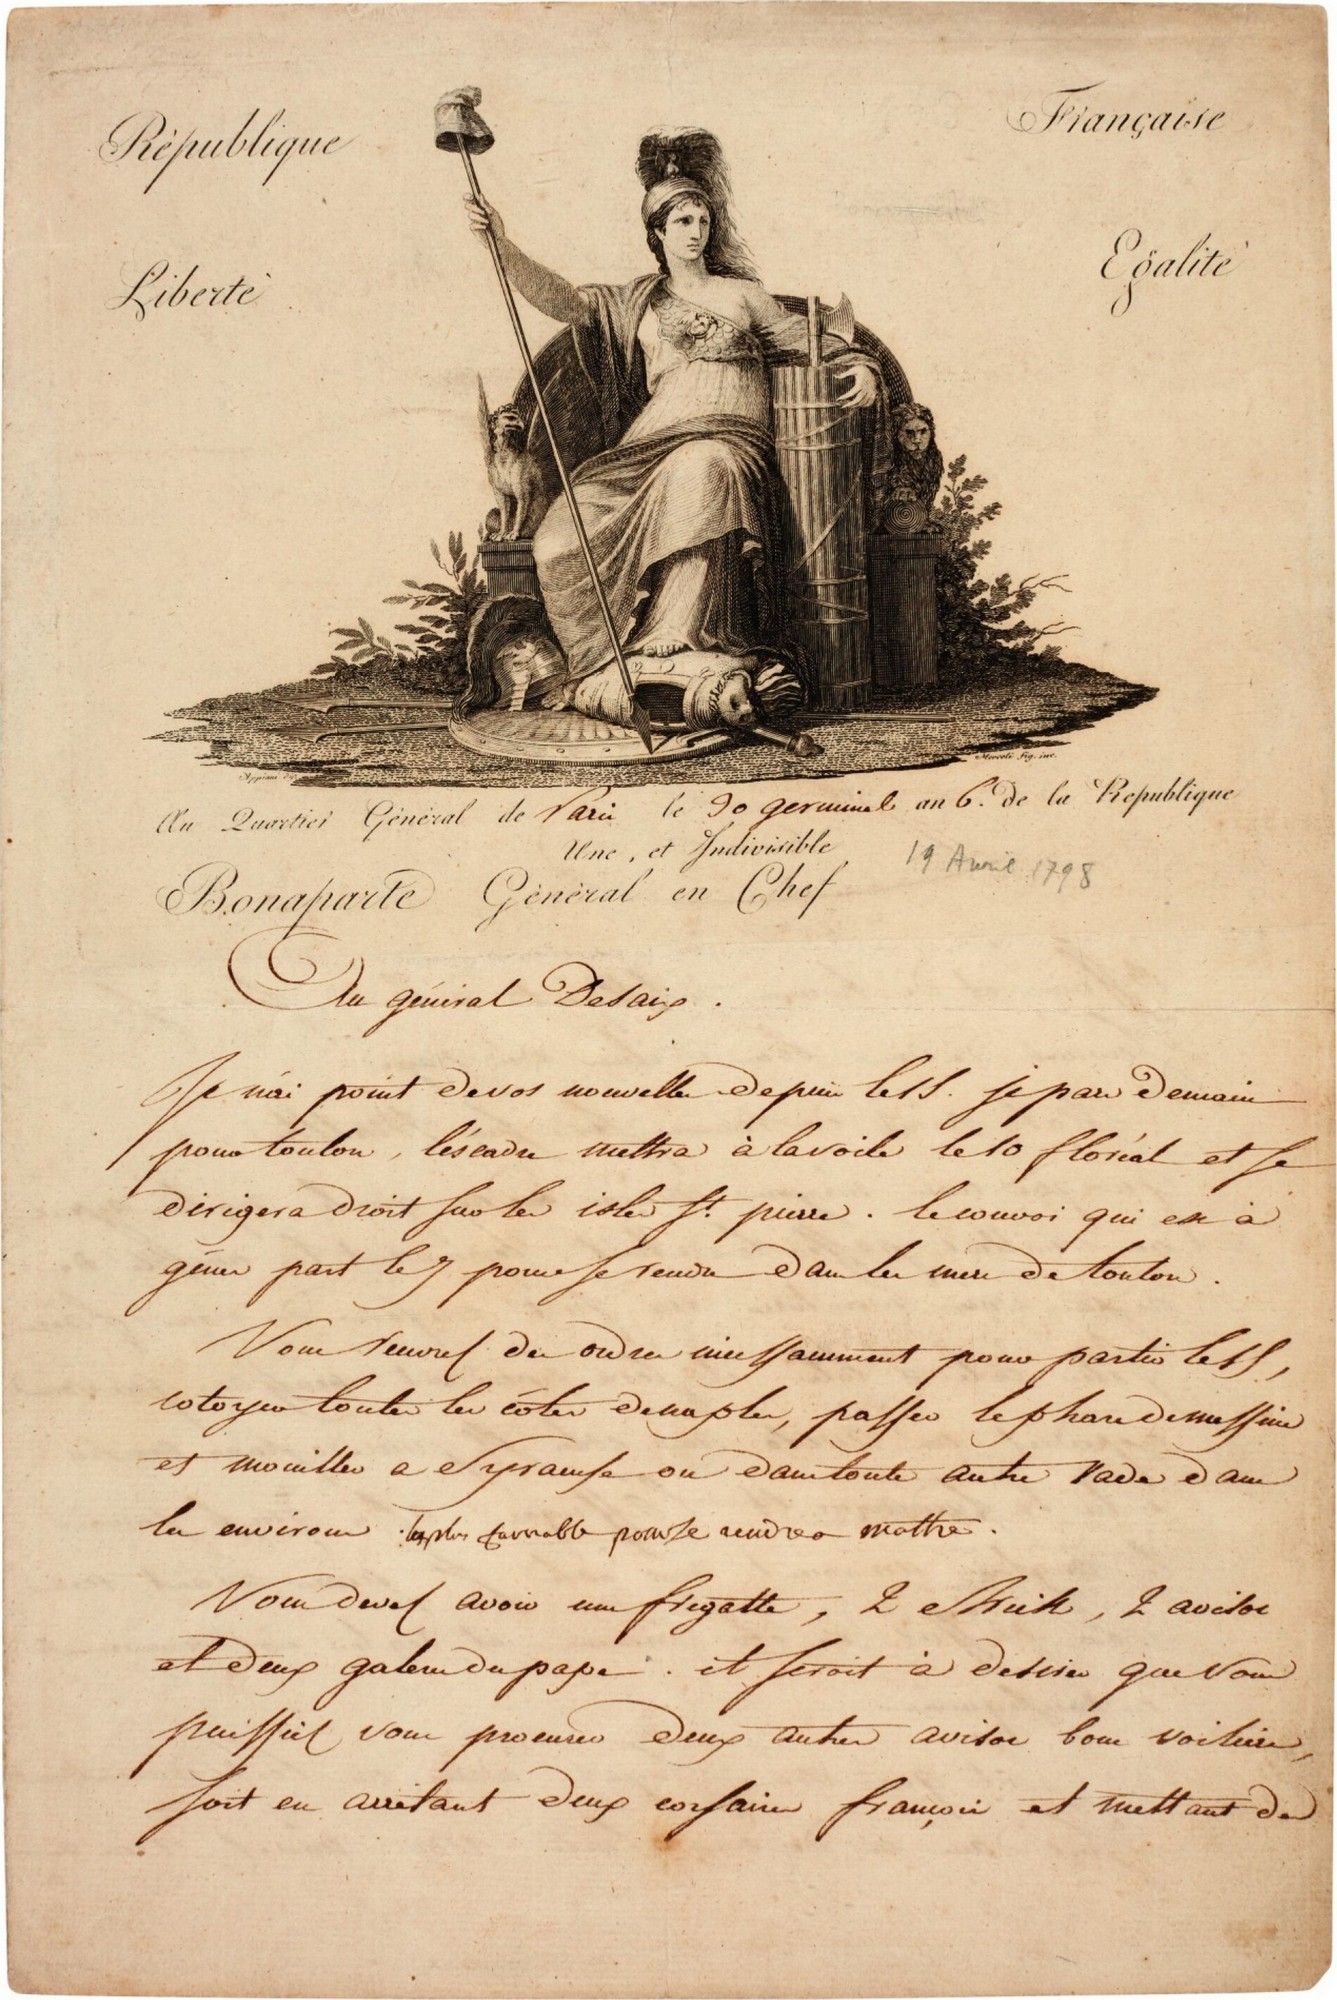 République Française
Liberté Egalité
Appiani
Mercoli fig. inc.
Au Quartier Général de Paris le 30 germinal an 6.e de la République
Une, et Indivisible
19 Avril 1798
Bonaparte Général en Chef
Au général Desaix.
Je n'ai point de vos nouvelles depuis le 15. je pars demain
pour toulon, l'éscadre mettra à la voile le 10 floréal et se
dirigera droit sur les isles St. pierre. le convoi qui est à
gênes part le 7 pour se rendre dans les mers de toulon.
Vous recevrez des ordres incessamment pour partir le 15,
cotoyer toutes les côtes de naples, passer le phare de messine
et mouiller a Syracuse ou dans toute autre rade dans
les environs la plus favorable pour se rendre a malthe.
Vous devez avoir une frégatte, 2 bricks, 2 avisos
et deux galeres du pape. il seroit à desirer que vous
puissiez vous procurer deux autres avisos bons voiliers,
soit en arrêtant deux corsaires françois et mettant des